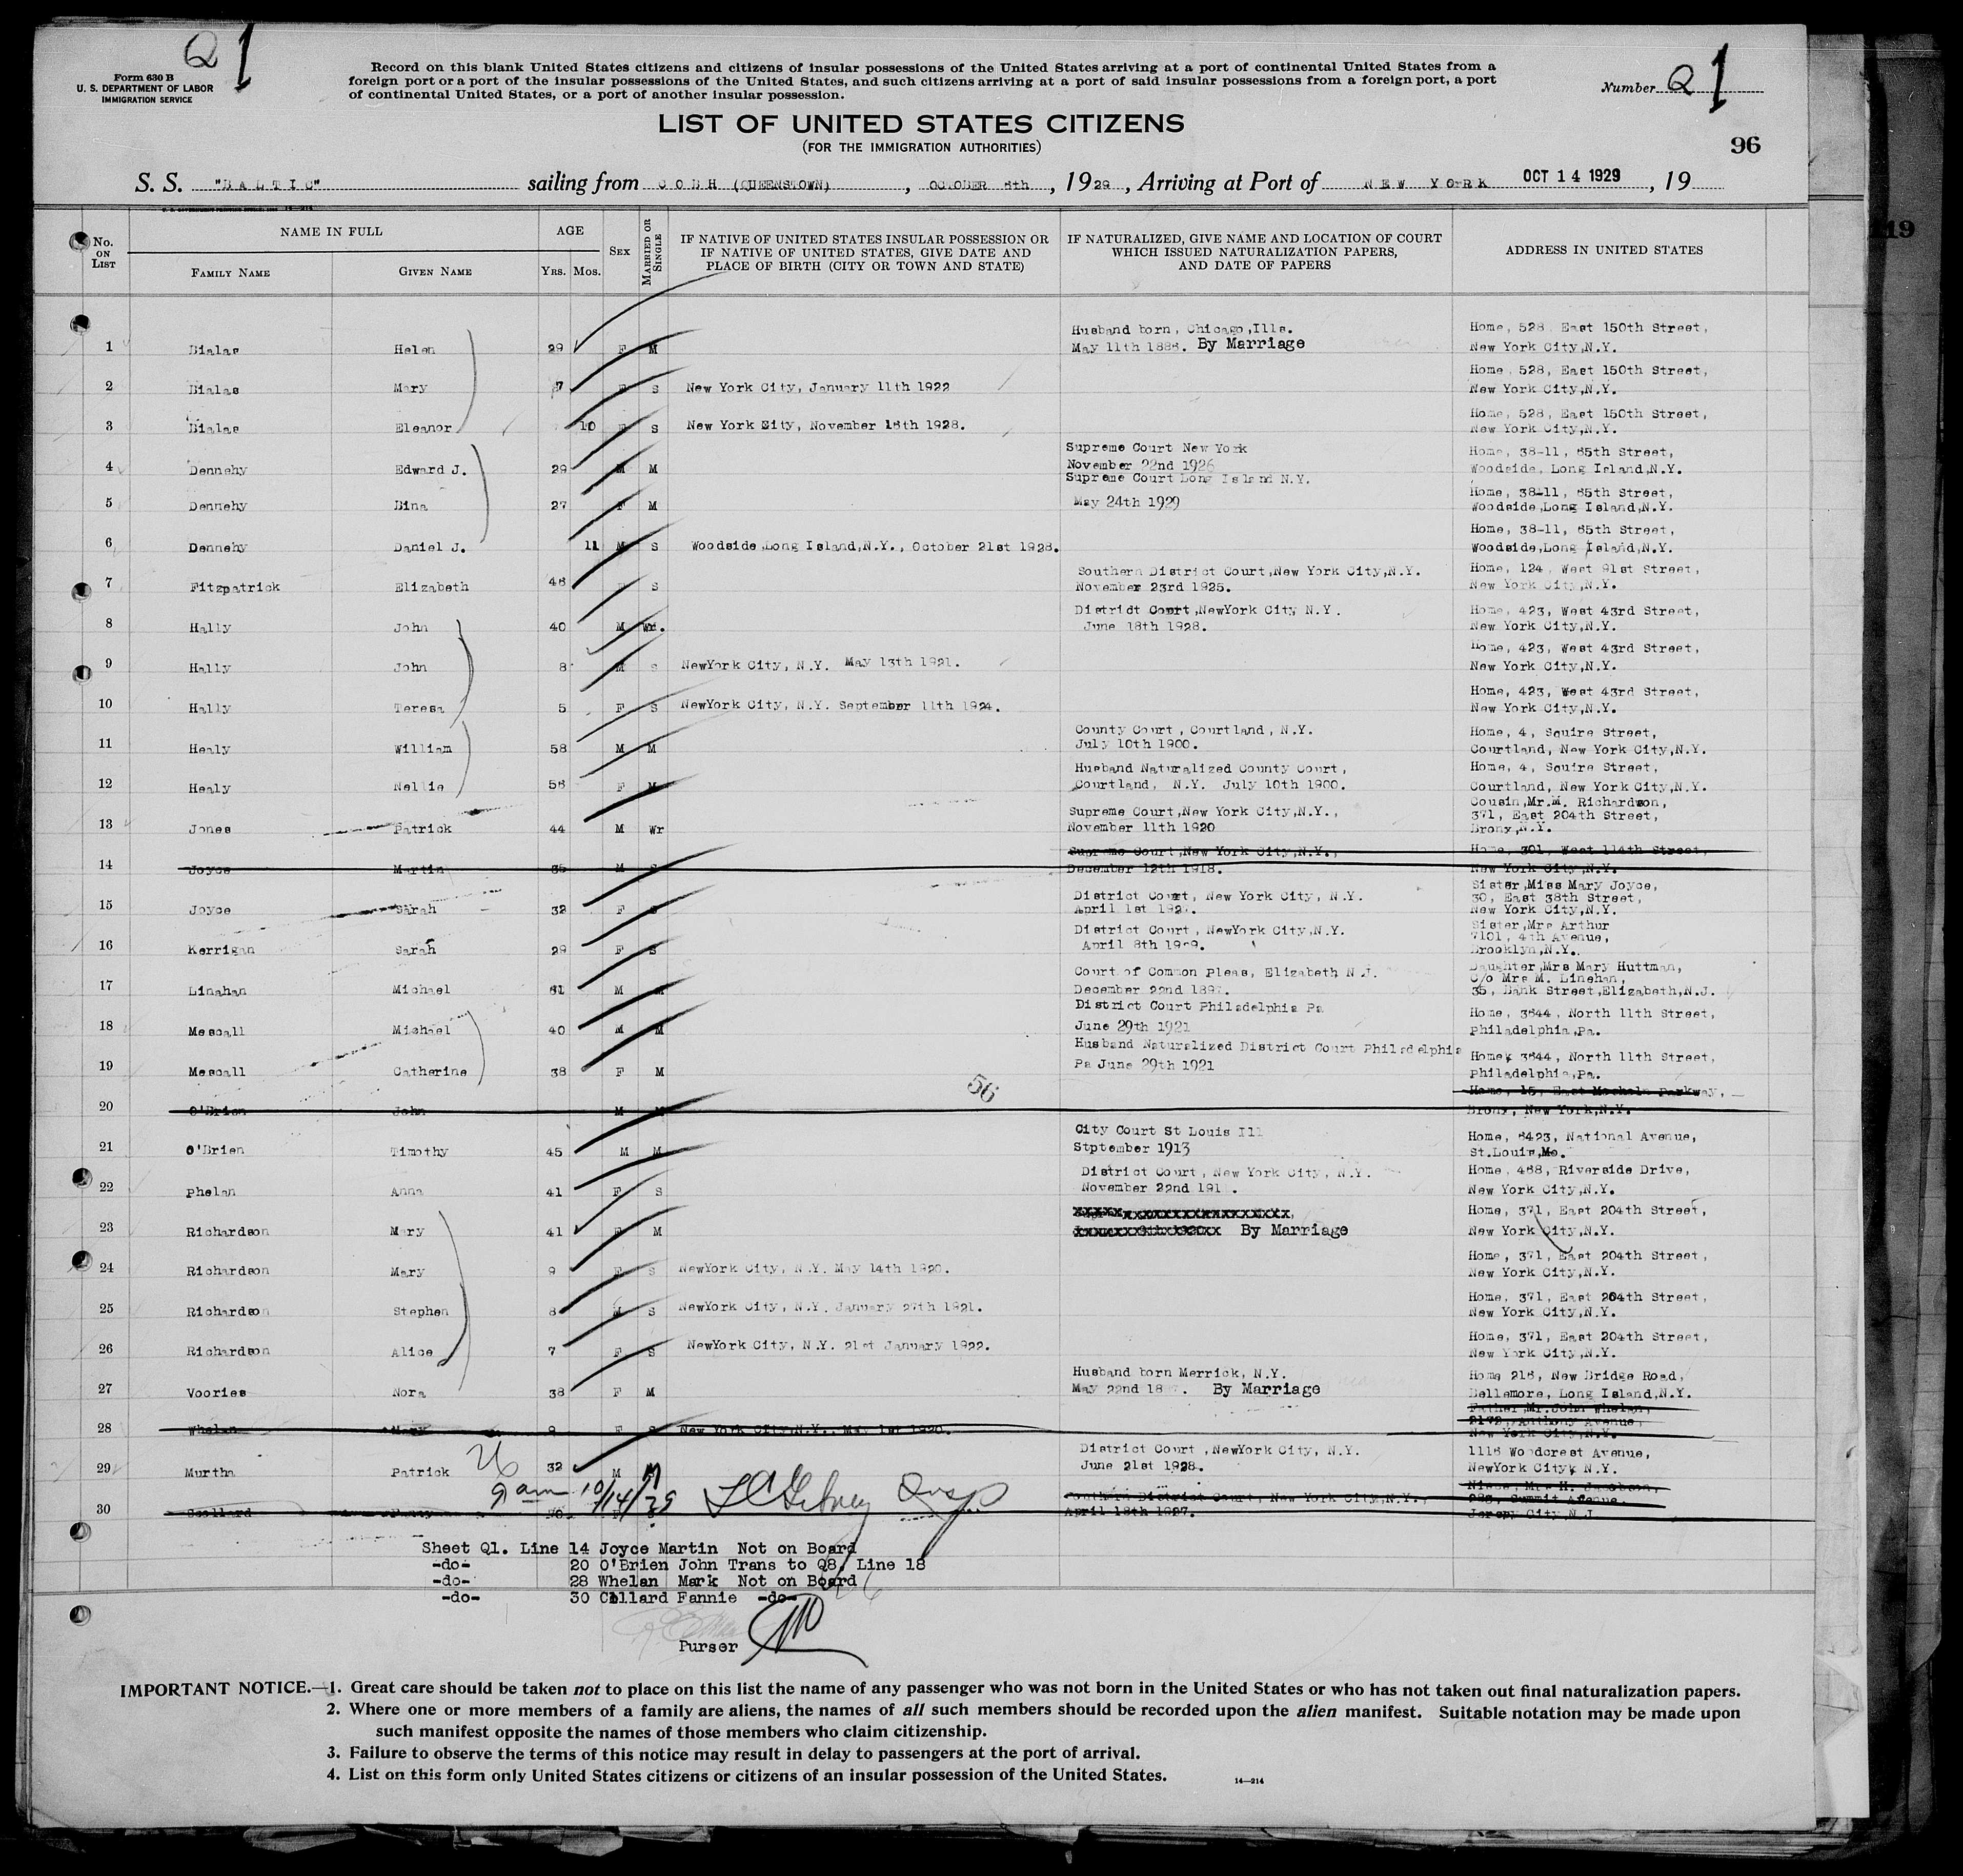 Q 1
Form 630 B
U. S. DEPARTMENT OF LABOR
IMMIGRATION SERVICE
Record on this blank United States citizens and citizens of insular possessions of the United States arriving at a port of continental United States from a
foreign port or a port of the insular possessions of the United States, and such citizens arriving at a port of said insular possessions from a foreign port, a port
of continental United States, or a port of another insular possession.
Number Q 1
LIST OF UNITED STATES CITIZENS
(FOR THE IMMIGRATION AUTHORITIES)
96
S. S. "BALTIC" sailing from COBH (QUEENSTOWN), OCTOBER 6th, 1929, Arriving at Port of NEW YORK OCT 14 1929, 19
No. ON LIST NAME IN FULL FAMILY NAME GIVEN NAME AGE YRS. MOS. SEX MARRIED OR SINGLE IF NATIVE OF UNITED STATES INSULAR POSSESSION OR IF NATIVE OF UNITED STATES, GIVE DATE AND PLACE OF BIRTH (CITY OR TOWN AND STATE) IF NATURALIZED, GIVE NAME AND LOCATION OF COURT WHICH ISSUED NATURALIZATION PAPERS, AND DATE OF PAPERS ADDRESS IN UNITED STATES
1 Bialas Helen 29 F M Husband born, Chicago,Ills. May 11th 1888. By Marriage Home, 528 East 150th Street, New York City,N.Y.
2 Bialas Mary 7 F S New York City, January 11th 1922 Home 528, East 150th Street, New York City,N.Y.
3 Bialas Eleanor 10 F S New York City, November 16th 1928. Home, 528, East 150th Street, New York City,N.Y.
4 Dennehy Edward J. 29 M M Supreme Court New York November 22nd 1926 Home, 38-11, 65th Street, Woodside, Long Island,N.Y.
5 Dennehy Bina 27 F M Supreme Court Long Island N.Y. May 24th 1929 Home, 38-11, 65th Street, Woodside,Long Island,N.Y.
6 Dennehy Daniel J. 11 M S Woodside Long Island,N.Y., October 21st 1928. Home, 38-11, 65th Street, Woodside,Long Island,N.Y.
7 Fitzpatrick Elizabeth 46 F S Southern District Court,New York City,N.Y. November 23rd 1925. Home, 124 West 91st Street, New York City,N.Y.
8 Hally John 40 M Wd. District Court,NewYork City N.Y. June 18th 1928. Home, 423, West 43rd Street, New York City,N.Y.
9 Hally John 8 M S NewYork City, N.Y. May 13th 1921. Home, 423, West 43rd Street, New York City,N.Y.
10 Hally Teresa 5 F S NewYork City, N.Y. September 11th 1924. Home, 423, West 43rd Street, New York City,N.Y.
11 Healy William 58 M M County Court, Courtland, N.Y. July 10th 1900. Home, 4, Squire Street, Courtland, New York City,N.Y.
12 Healy Nellie 56 F M Husband Naturalized County Court, Courtland, N.Y. July 10th 1900. Home, 4, Squire Street, Courtland, New York City,N.Y.
13 Jones Patrick 44 M Wr Supreme Court,New York City,N.Y., November 11th 1920 Cousin,Mr.M. Richardson, 371, East 204th Street, Bronx,N.Y.
14 Joyce Martin 35 M S Supreme Court,New York City,N.Y., December 12th 1918. Home, 301, West 114th Street, New York City,N.Y.
15 Joyce Sarah 32 F S District Court, New York City, N.Y. April 1st Sister,Miss Mary Joyce, 30, East 38th Street, New York City,N.Y.
16 Kerrigan Sarah 29 F S District Court, NewYork City,N.Y. April 8th 1929. Sister,Mrs Arthur 7101, 4th Avenue, Brooklyn,N.Y.
17 Linahan Michael 61 M M Court of Common Pleas, Elizabeth N.J. December 22nd Daughter,Mrs Mary Huttman, C/o Mrs M. Linehan, 35, Bank Street,Elizabeth,N.J.
18 Mescall Michael 40 M M District Court Philadelphia Pa June 29th 1921 Home, 3644, North 11th Street, Philadelphia,Pa.
19 Mescall Catherine 38 F M Husband Naturalized District Court Philadelphia Pa June 29th 1921 Home, 3644, North 11th Street, Philadelphia,Pa.
56
20 O'Brien John M M Home, 15, East Mosholu Parkway, Bronx, New York,N.Y.
21 O'Brien Timothy 45 M M City Court St Louis Ill Stptember 1913 Home, 6423, National Avenue, St.Louis,Mo.
22 Phelan Anna 41 F S District Court, New York City, N.Y. November 22nd Home, 468, Riverside Drive, New York City,N.Y.
23 Richardson Mary 41 F M By Marriage Home, 371, East 204th Street, New York City,N.Y.
24 Richardson Mary 9 F S NewYork City, N.Y. May 14th 1920. Home, 371, East 204th Street, New York City,N.Y.
25 Richardson Stephen 8 M S NewYork City, N.Y. January 27th 1921. Home, 371, East 204th Street, New York City,N.Y.
26 Richardson Alice 7 F S NewYork City, N.Y. 21st January 1922. Home, 371, East 204th Street, New York City,N.Y.
27 Voories Nora 38 F M Husband born Merrick, N.Y. May 22nd By Marriage Home 216, New Bridge Road, Bellemore, Long Island,N.Y.
28 Whelan Mary 9 F S New York City,N.Y., May 1st 1920. Father,Mr.John Whelan, 2172, Anthony Avenue, New York City,N.Y.
29 Murtha Patrick 32 M M District Court,NewYork City, N.Y. June 21st 1928. 1116 Woodcrest Avenue, NewYork City, N.Y.
9 am 10/14/29 Insp
30 Southern District Court, New York City,N.Y., April 18th 1927. Niece, Mrs H. Jacobson, Summit Avenue, Jersey City,N.J.
Sheet Q1. Line 14 Joyce Martin Not on Board
-do- 20 O'Brien John Trans to Q8, Line 18
-do- 28 Whelan Mark Not on Board
-do- 30 Collard Fannie -do-
Purser
IMPORTANT NOTICE.—1. Great care should be taken not to place on this list the name of any passenger who was not born in the United States or who has not taken out final naturalization papers.
2. Where one or more members of a family are aliens, the names of all such members should be recorded upon the alien manifest. Suitable notation may be made upon
such manifest opposite the names of those members who claim citizenship.
3. Failure to observe the terms of this notice may result in delay to passengers at the port of arrival.
4. List on this form only United States citizens or citizens of an insular possession of the United States.
14—214